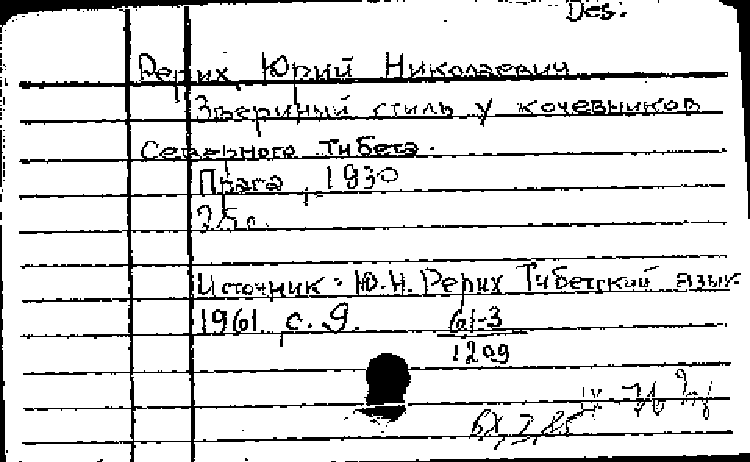 Des.
Рерих, Юрий Николаевич
Звериный стиль у кочевников
Северного Тибета.
Прага, 1930
25 с.
Источник: Ю.Н. Рерих Тибетский язык
1961 с. 9. 61-3
1209